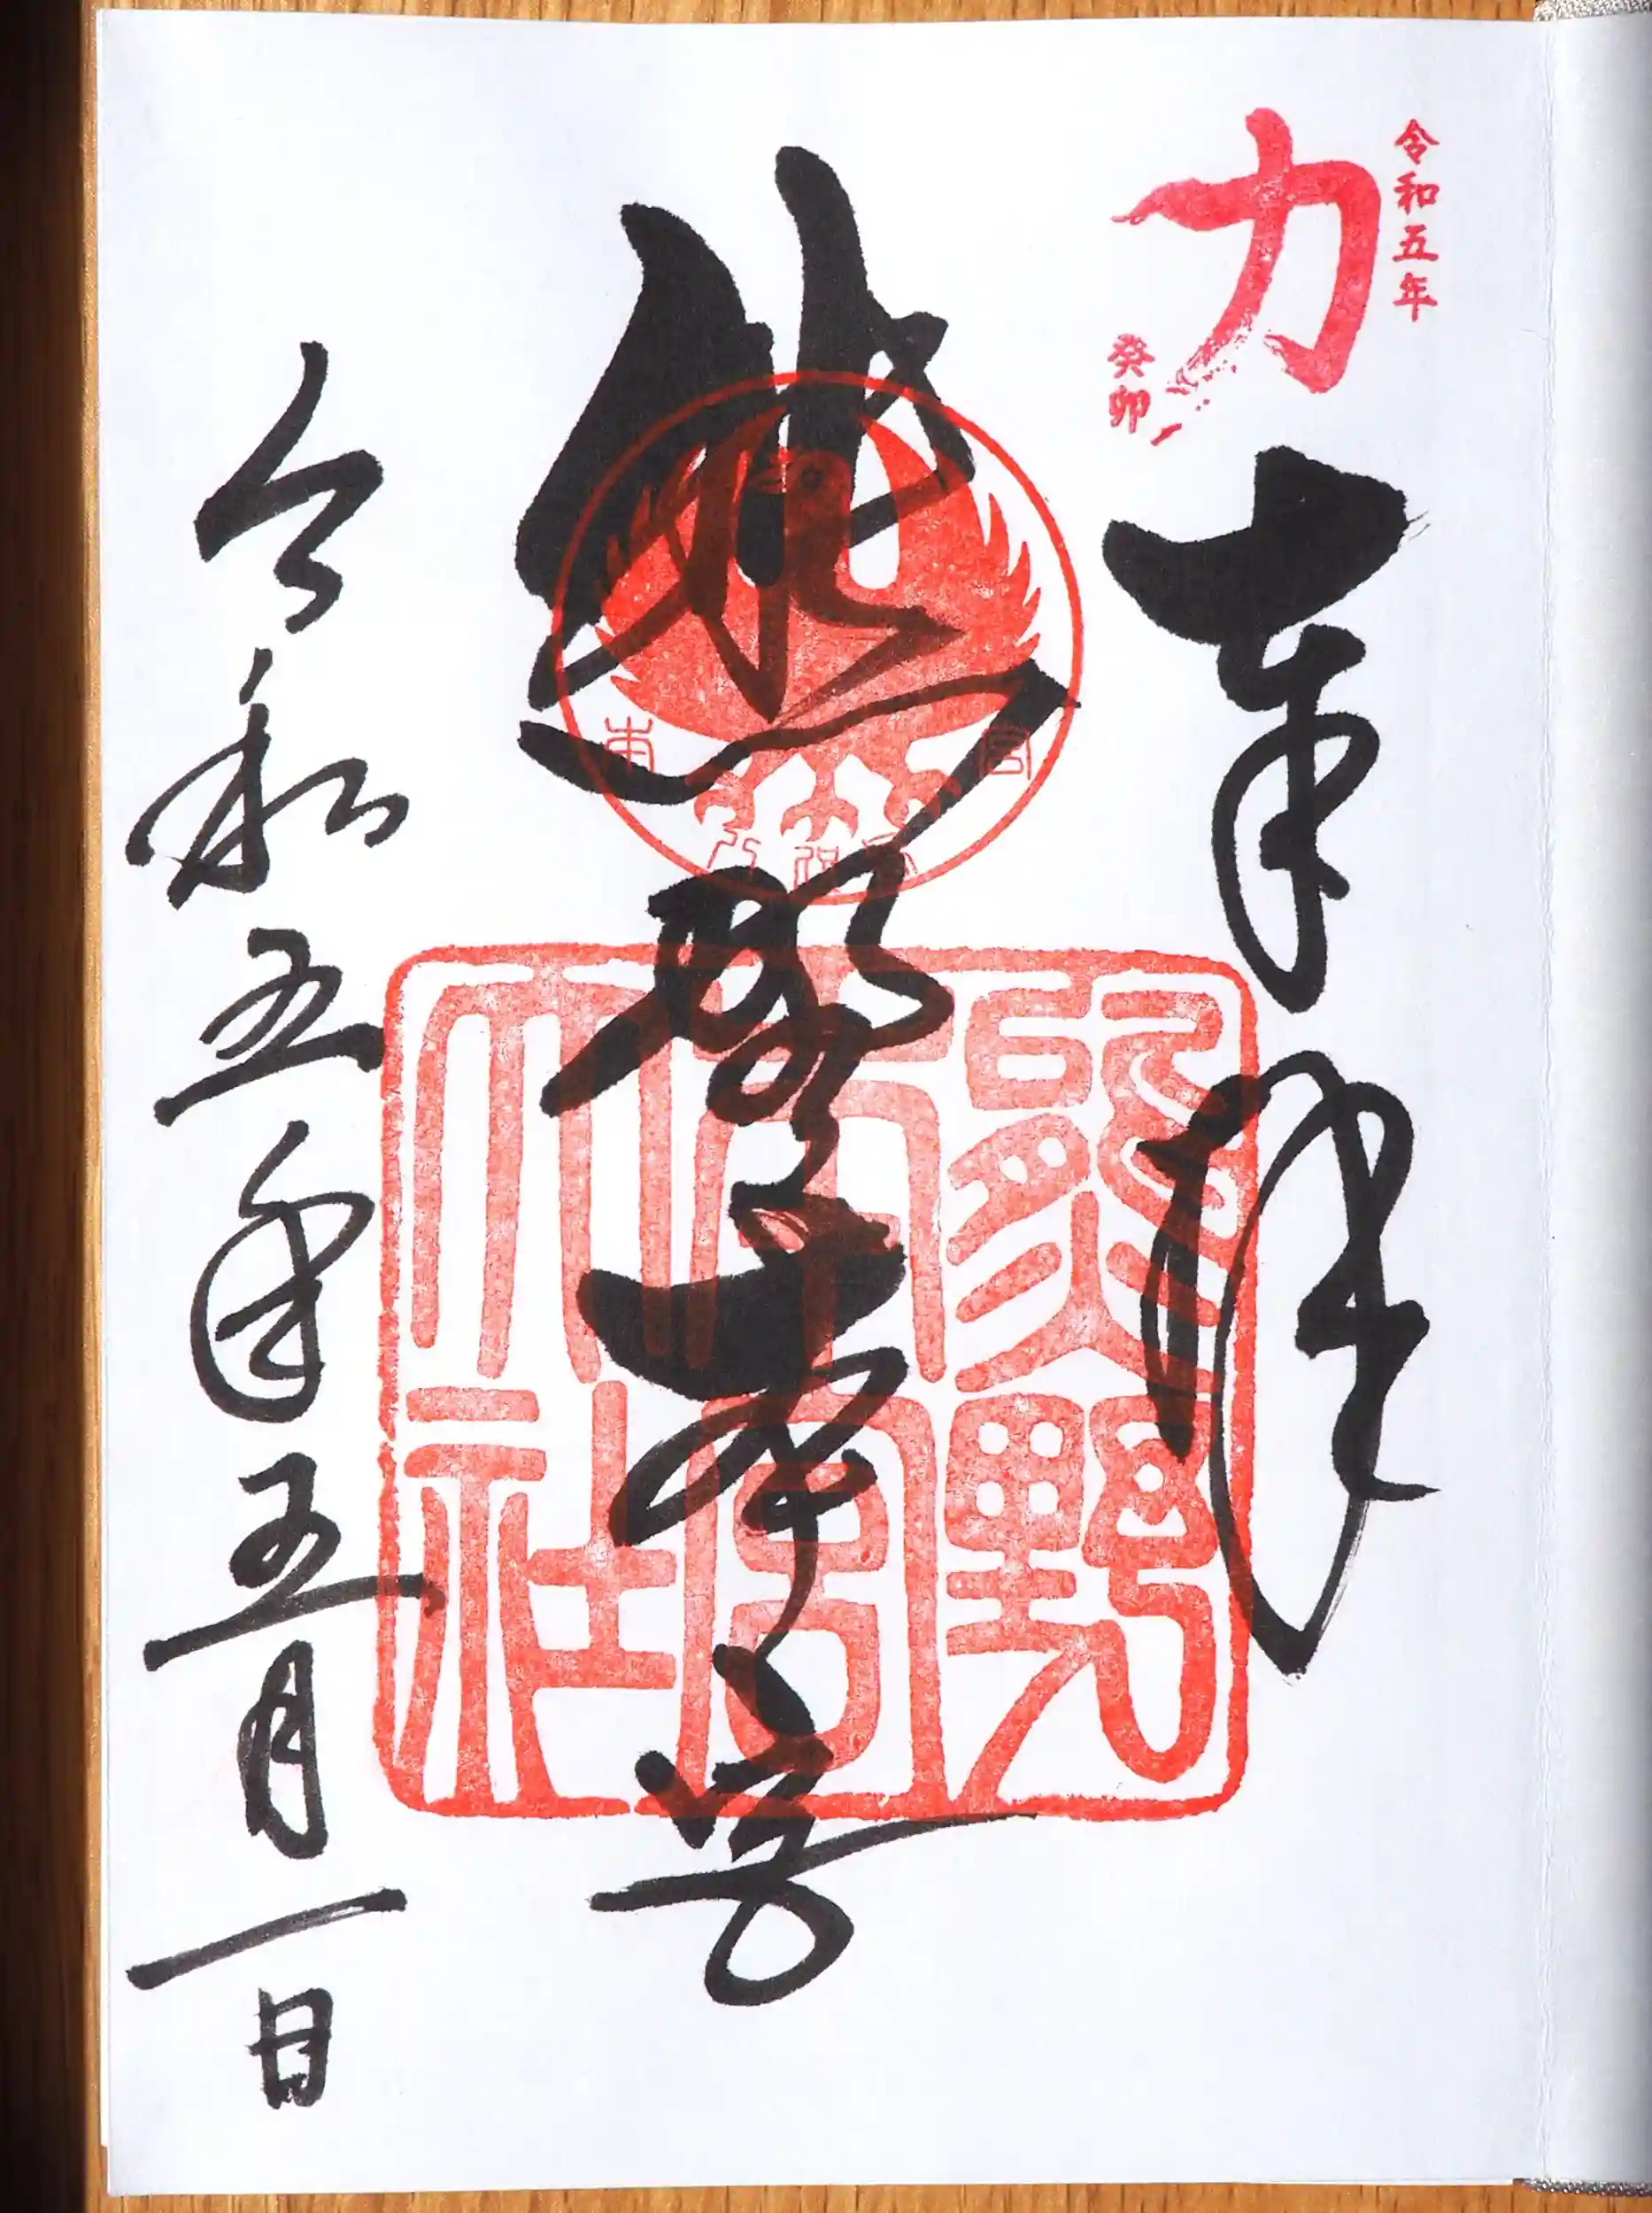 令和五年
力
癸卯
奉拝
熊野本宮
熊野本宮大社
令和五年五月一日